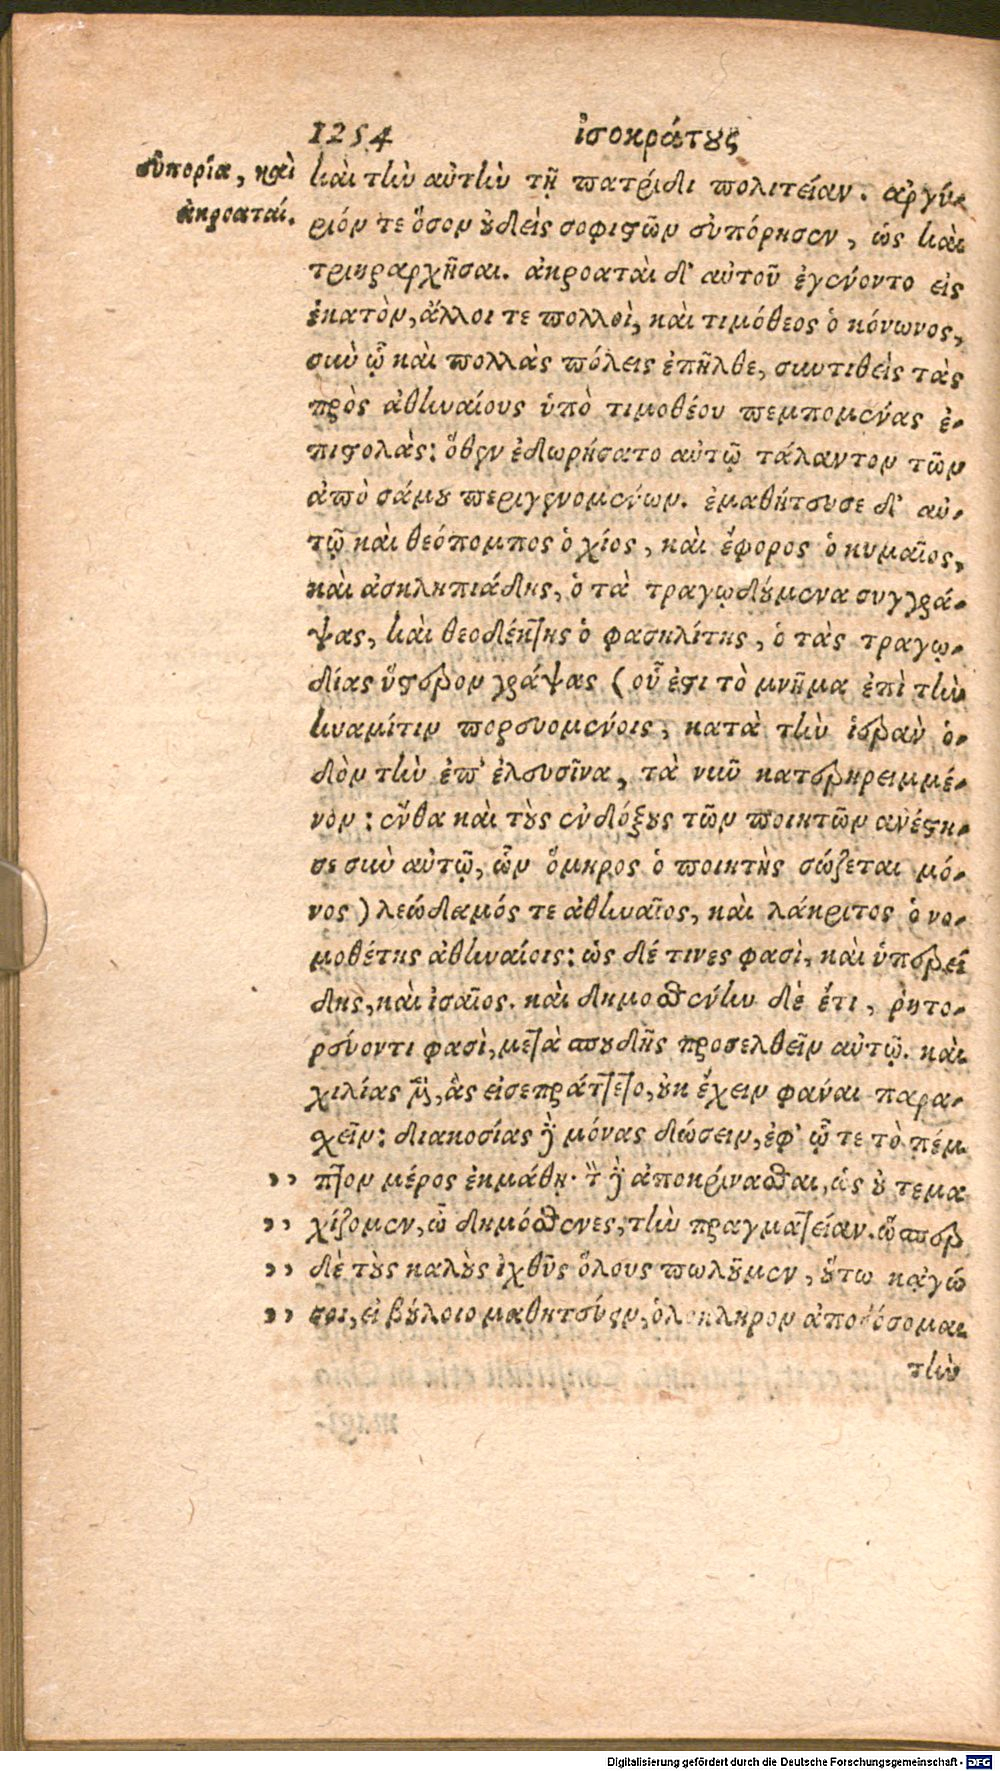 1254 ἰσοκράτους
εὐπορία, καὶ
ἀκροαταί.
καὶ τὴν αὐτὴν τῇ πατρίδι πολιτείαν. ἀργύ-
ριόν τε ὅσον οὐδεὶς σοφιστῶν εὐπόρησεν, ὡς καὶ
τριηραρχῆσαι. ἀκροαταὶ δ' αὐτοῦ ἐγένοντο εἰς
ἑκατὸν, ἄλλοι τε πολλοὶ, καὶ τιμόθεος ὁ κόνωνος,
σὺν ᾧ καὶ πολλὰς πόλεις ἐπῆλθε, συντιθεὶς τὰς
πρὸς ἀθηναίους ὑπὸ τιμοθέου πεμπομένας ἐ-
πιστολὰς: ὅθεν ἐδωρήσατο αὐτῷ τάλαντον τῶν
ἀπὸ σάμου περιγενομένων. ἐμαθήτευσε δ' αὐ-
τῷ καὶ θεόπομπος ὁ χίος, καὶ ἔφορος ὁ κυμαῖος,
καὶ ἀσκληπιάδης, ὁ τὰ τραγῳδούμενα συγγρά-
ψας, καὶ θεοδέκτης ὁ φασηλίτης, ὁ τὰς τραγῳ-
δίας ὕστερον γράψας (οὗ ἐστι τὸ μνῆμα ἐπὶ τὴν
κυαμίτιν πορευομένοις, κατὰ τὴν ἱερὰν ὁ-
δὸν τὴν ἐπ' ἐλευσῖνα, τὰ νῦν κατερηρειμμέ-
νον: ἔνθα καὶ τοὺς ἐνδόξους τῶν ποιητῶν ἀνέστη-
σε σὺν αὐτῷ, ὧν ὅμηρος ὁ ποιητὴς σώζεται μό-
νος) λεώδαμός τε ἀθηναῖος, καὶ λάκριτος ὁ νο-
μοθέτης ἀθηναίοις: ὡς δέ τινες φασὶ, καὶ ὑπερεί
δης, καὶ ἰσαῖος. καὶ δημοσθένην δὲ ἔτι, ῥητο-
ρεύοντι φασὶ, μετὰ σπουδῆς προσελθεῖν αὐτῷ. καὶ
χιλίας μὲν, ἃς εἰσεπράττετο, οὐκ ἔχειν φάναι παρα-
χεῖν: διακοσίας δὲ μόνας δώσειν, ἐφ' ᾧ τε τὸ πέμ
,, πτον μέρος ἐκμάθῃ. τὸν δὲ ἀποκρίνασθαι, ὡς οὐ τεμα
,, χίζομεν, ὦ δημόσθενες, τὴν πραγματείαν. ὥσπερ
,, δὲ τοὺς καλοὺς ἰχθῦς ὅλους πωλοῦμεν, οὕτω κᾀγώ
,, σοι, εἰ βούλοιο μαθητεύειν, ὁλόκληρον ἀποδόσομαι
τὴν
Digitalisierung gefördert durch die Deutsche Forschungsgemeinschaft - DFG